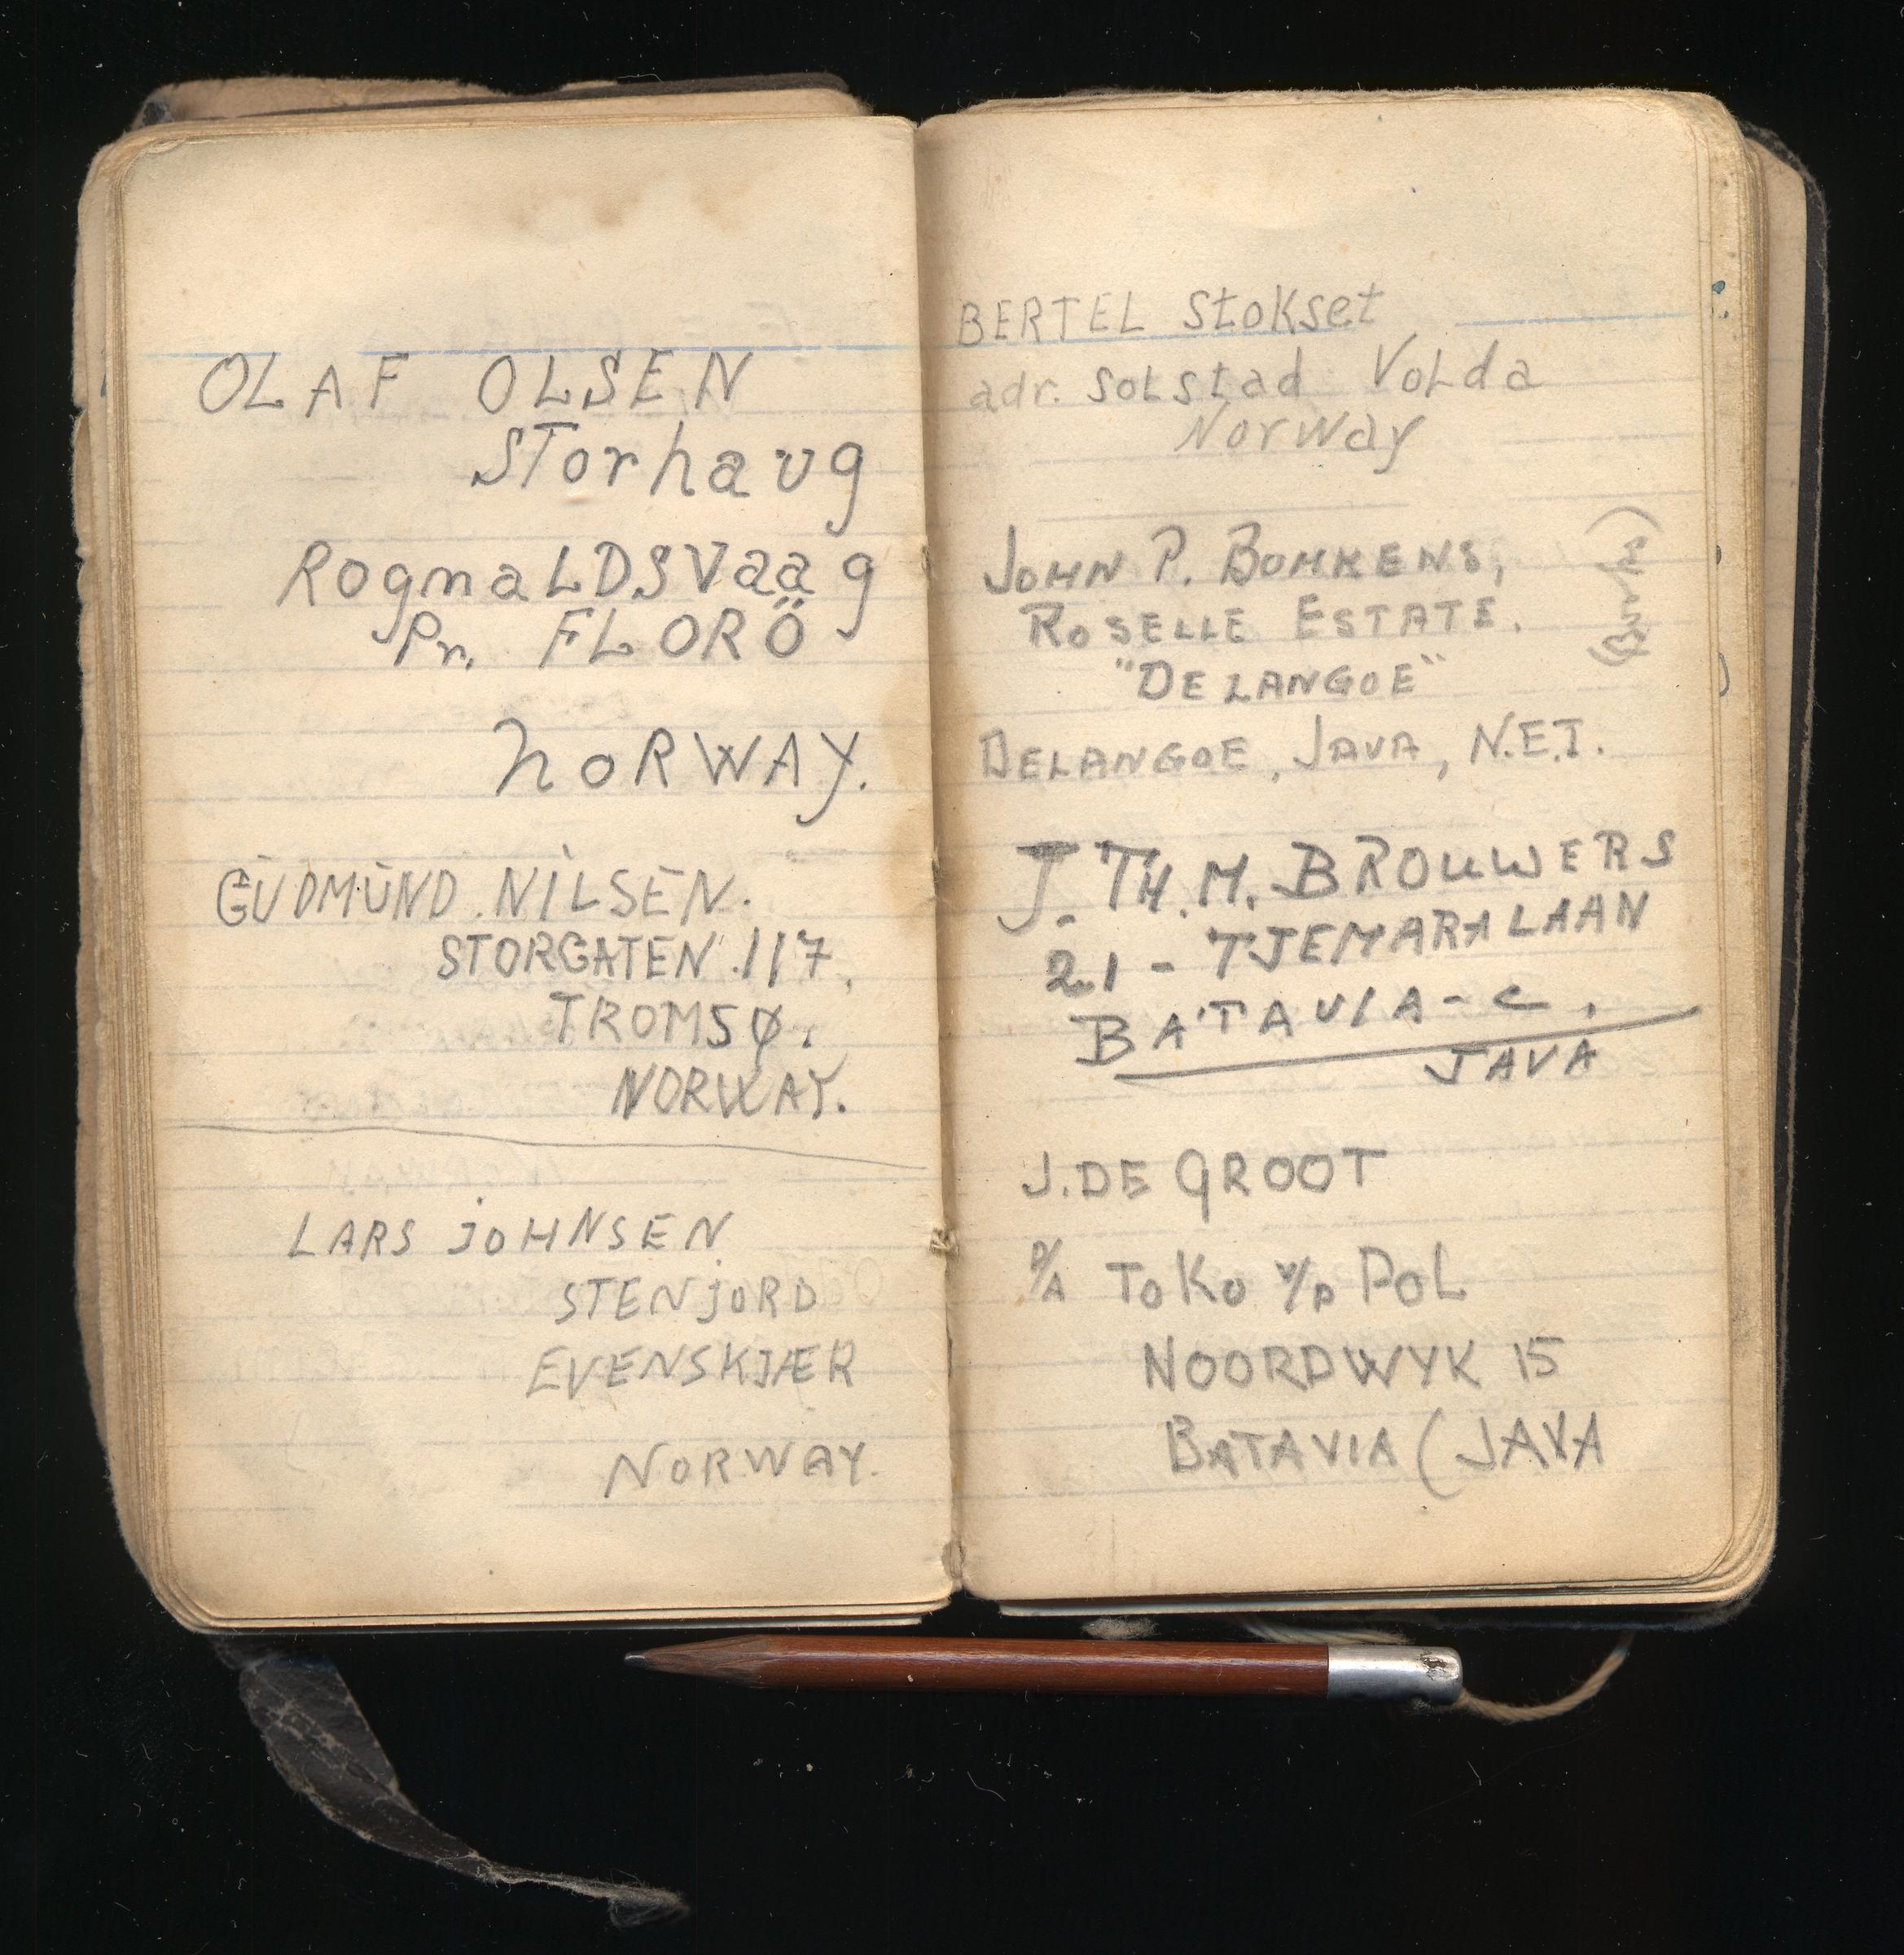 OLAF OLSEN
STorhaug
RognaLDSVaag
Pr. FLORÖ
NORWAY.
GUDMUND. NILSEN.
STORGATEN. 117,
TROMSØ.
NORWAY.
LARS JOHNSEN
STENJORD
EVENSKJÆR
NORWAY.
BERTEL StoKset
adr. SoLstad VoLda
NorWay
JOHN P. BOHKENS,
ROSELLE ESTATE.
"DELANGOE"
DELANGOE, JAVA, N.E.I.
J. TH. M. BROUWERS
21 - TJEMARALAAN
BATAVIA - C.
JAVA
J. DE GROOT
P/A ToKo v/D POL
NOORDWYK 15
BATAVIA (JAVA